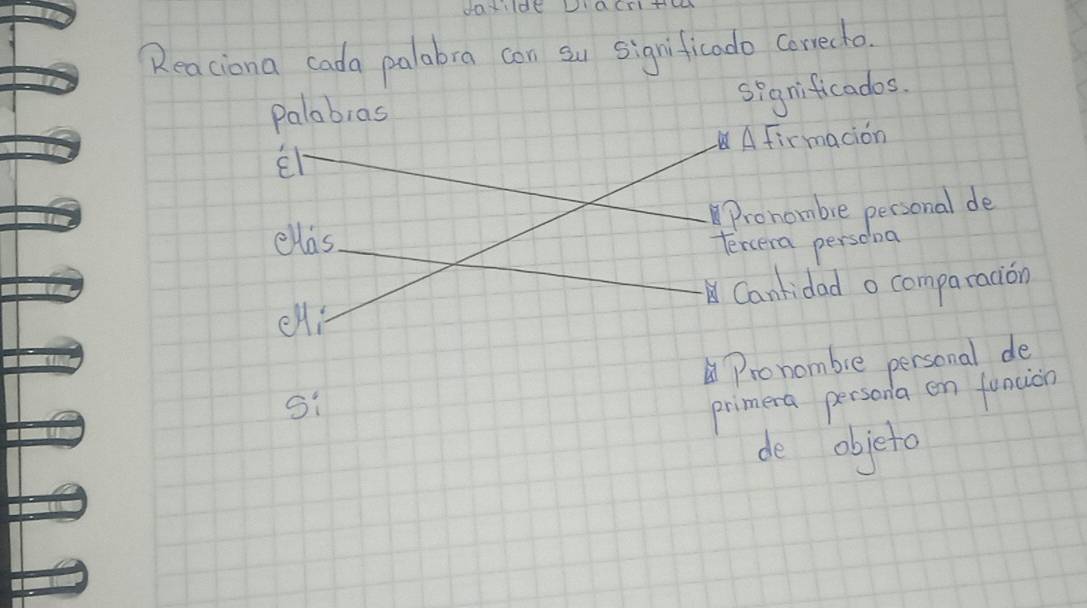 Reaciona cada palabra con su significado correcto.
palabras
significados.
Él
Afirmación
Pronombre personal de
tercera persona
Más
Cantidad o comparación
Mi
Pronombre personal de
primera persona en función
de objeto
Si